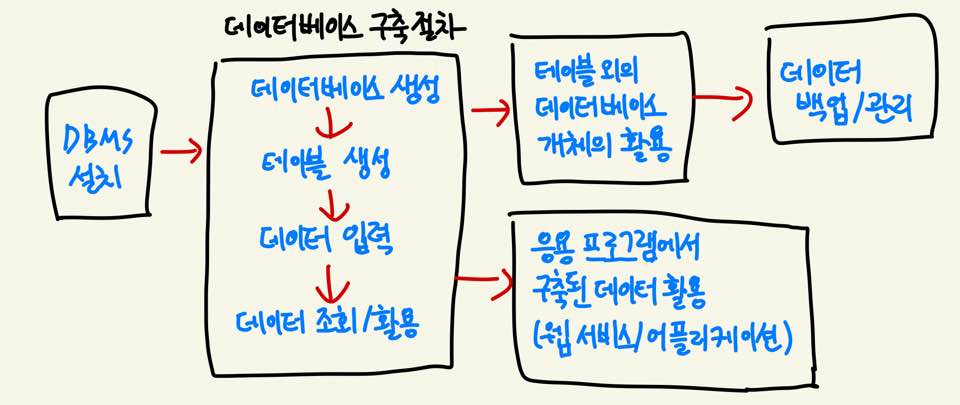 데이터베이스 구축절차
DBMS
설치
데이터베이스 생성
테이블 생성
데이터 입력
데이터 조회/활용
테이블 외의
데이터베이스
개체의 활용
데이터
백업/관리
응용 프로그램에서
구축된 데이터 활용
(웹 서비스/어플리케이션)